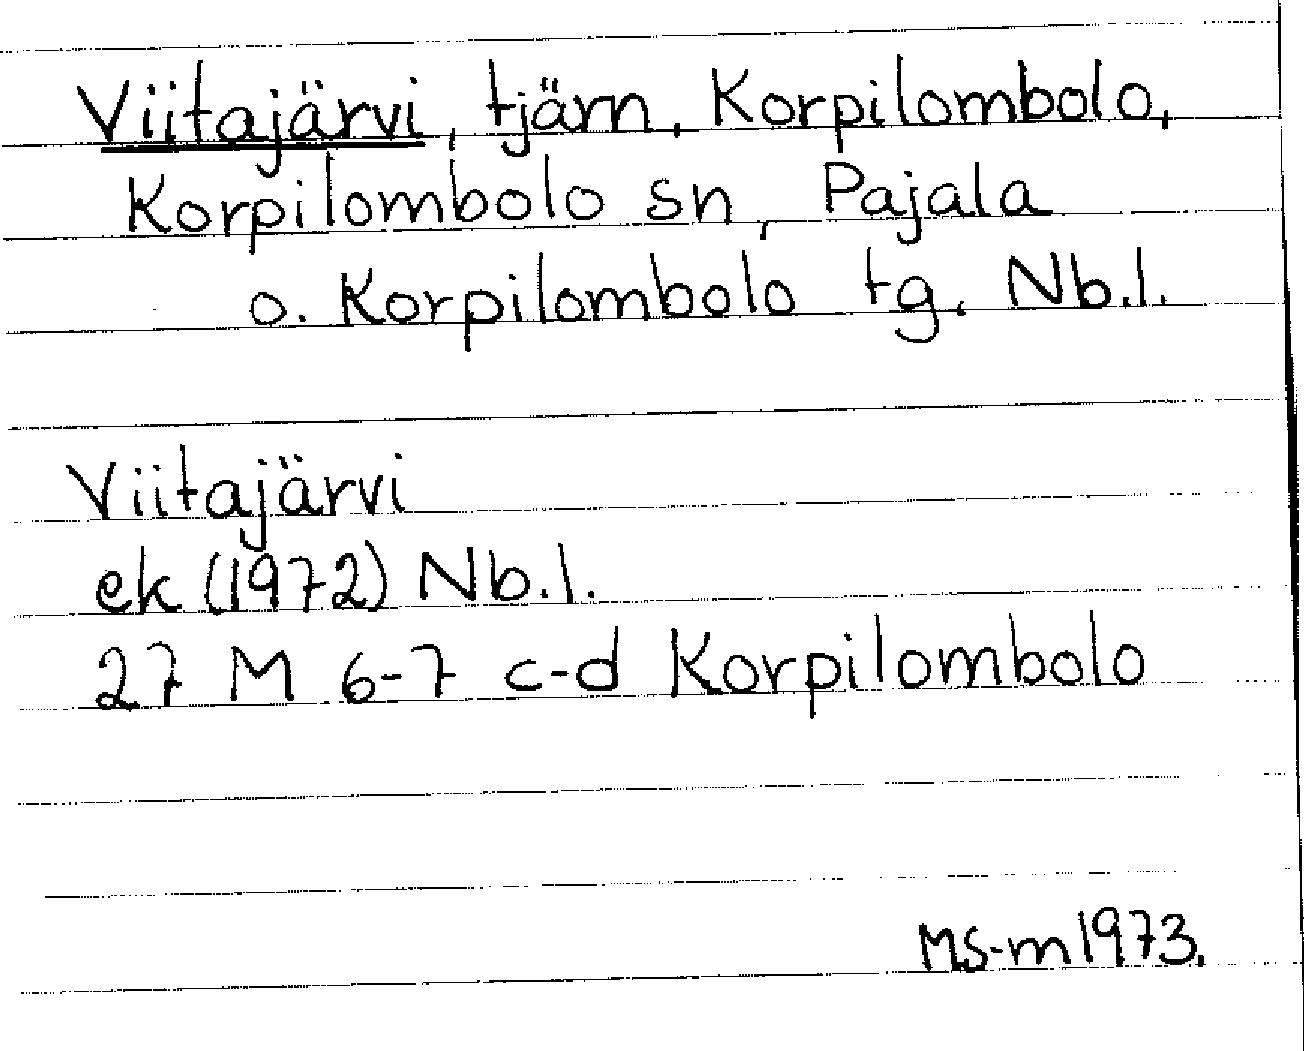 Viitajärvi, tjärn, Korpilombolo,
Korpilombolo sn, Pajala
o. Korpilombolo tg. Nb.l.
Viitajärvi
ek (1972) Nb.l.
27 M 6-7 c-d Korpilombolo
MS-m 1973.